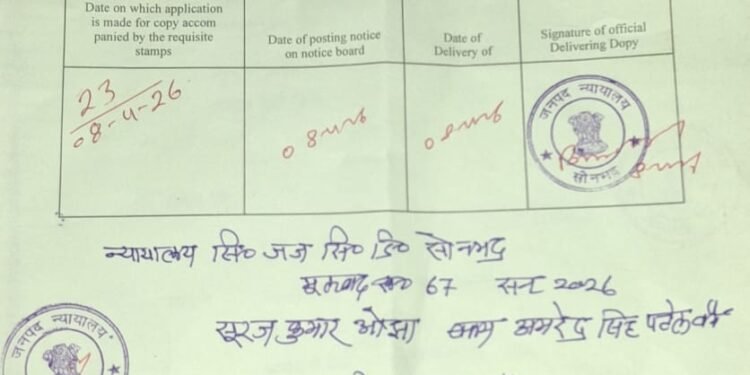 Date on which application
is made for copy accom
panied by the requisite
stamps
Date of posting notice
on notice board
Date of
Delivery of
Signature of official
Delivering Dopy
23
08-4-26
जनपद न्यायालय
सोनभद्र
न्यायालय सि० जज सि० डि० सोनभद्र
मू०वाद सं० 67 सन 2026
सूरज कुमार ओझा बनाम अमरेन्द्र सिंह पटेल
जनपद न्यायालय